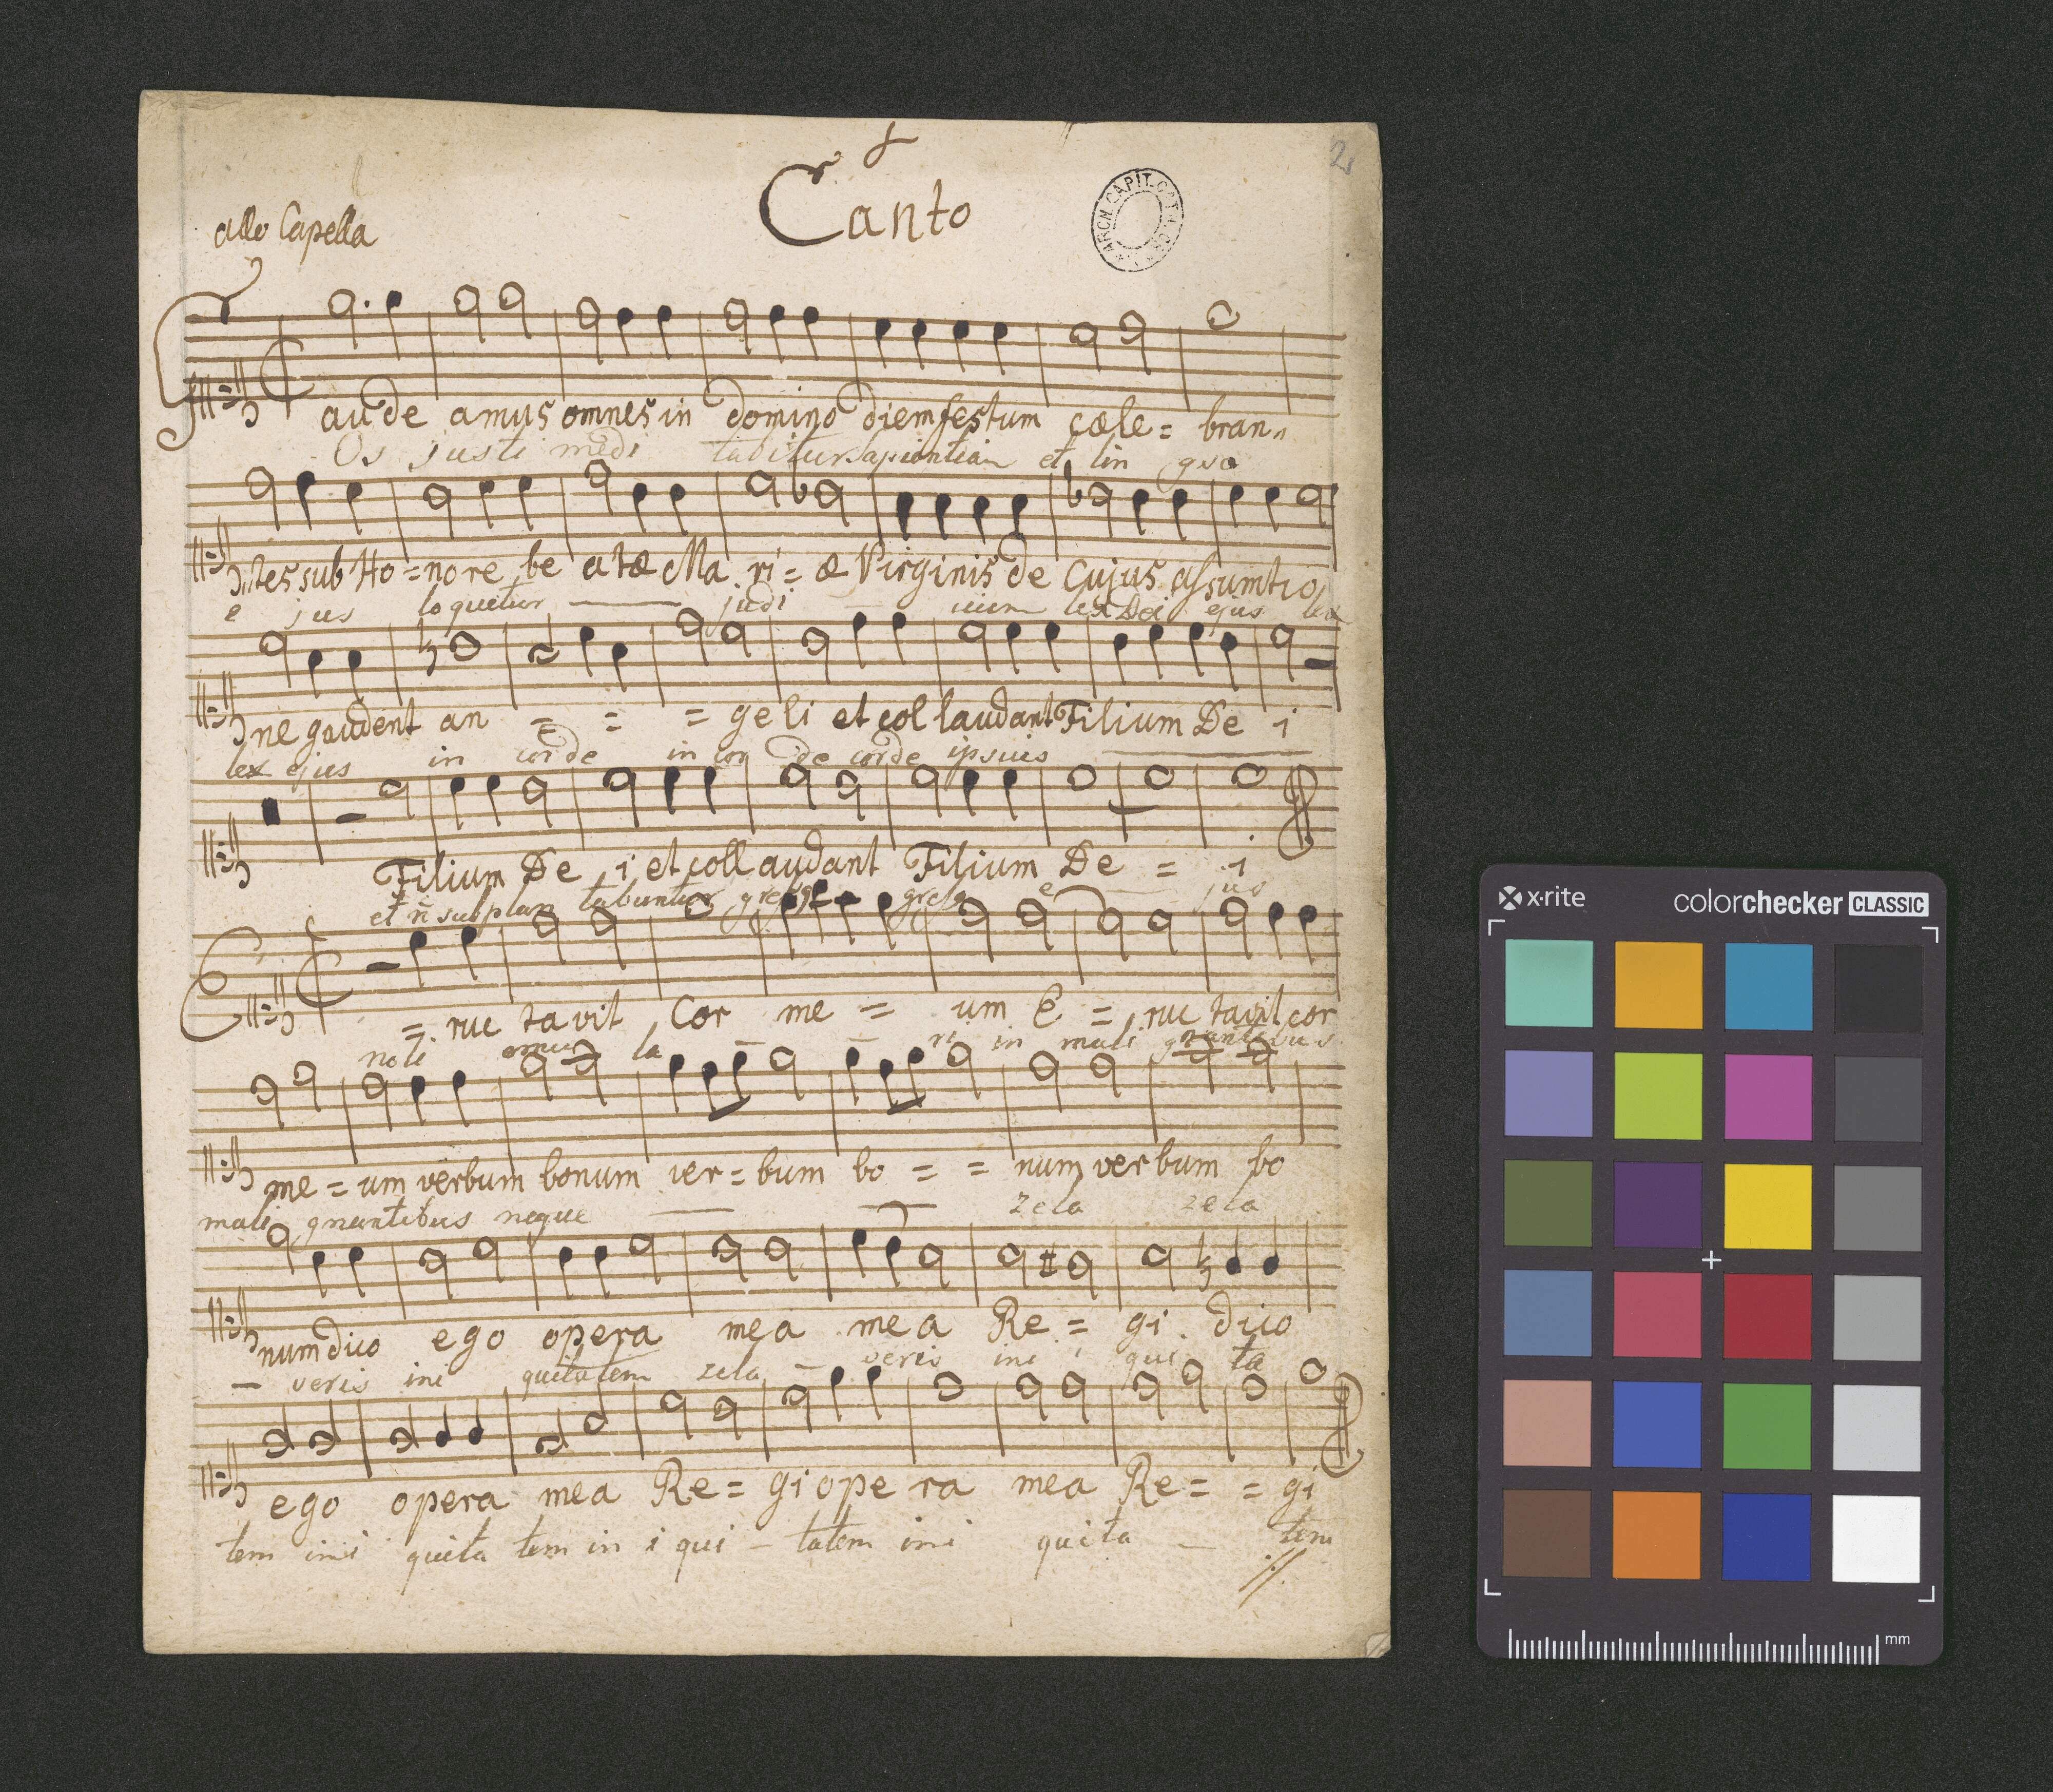 2
Canto
allo Capella
ARCH. CAPIT. CATH.
Gaude amus omnes in domino diem festum cæle = bran„
Os justi medi tabitur sapientiam et lin gva
„tes sub Ho = nore be atæ Ma ri = æ Virginis de Cujus assumtio
e jus loquetur — judi — cium lex Dei ejus lex
ne gaudent an = = = geli et col laudant Filium De i
lex ejus in corde in cor de corde ipsius —
Filium De i et coll audant Filium De = i
et ñ subplan tabuntur gre gre e — jus
E = ruc tavit Cor me = um E = ruc tavit cor
noli emu la — — ri in mali gnantibus
me = um verbum bonum ver = bum bo = = num verbum bo
mali gnantibus neque — — zela zela
num dico ego opera mea mea Re = gi dico
— veris ini quitatem zela — veris ini qui ta
ego opera mea Re = gi ope ra mea Re = = gi
tem ini quita tem in i qui – tatem ini quita — tem
x·rite
colorchecker CLASSIC
mm